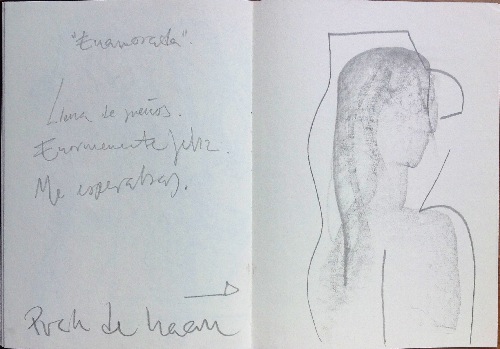 "Enamorada".
Llena de sueños.
Enormemente feliz.
Me esperabas.
de